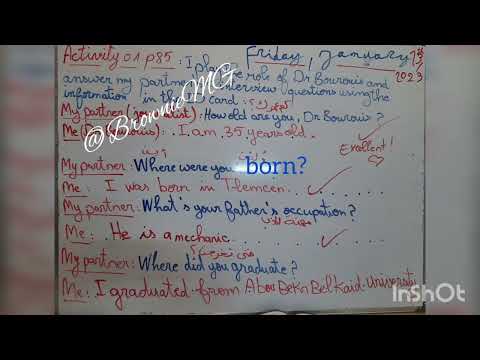 Activity 01 p85 : I play the role of Dr Bourouis and Friday, January 13th, 2023
answer my partner's interview questions using the
information in the ID card.
My partner (journalist) : How old are you, Dr Bourouis ?
Me (Dr Bourouis) : I am 35 years old.
Excellent !
My partner: Where were you born?
Me : I was born in Tlemcen.
My partner: What's your father's occupation?
Me : He is a mechanic
My partner: Where did you graduate ?
Me : I graduated from Abou Bekr Belkaid University
@BrownieMG
InShOt